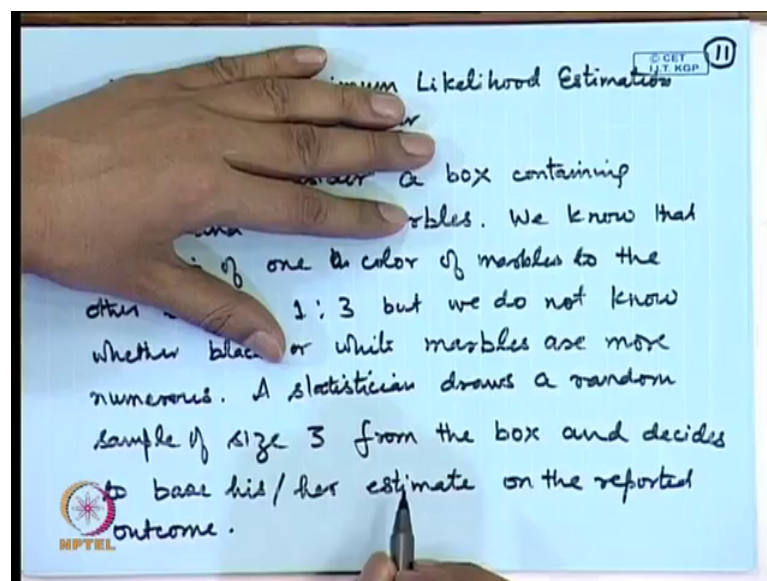 Likelihood Estimation
© CET
I.I.T. KGP
11
a box containing
We know that
of one color of marbles to the
1 : 3 but we do not know
whether or while marbles are more
numerous. A statistician draws a random
sample of size 3 from the box and decides
to base his/her estimate on the reported
outcome.
NPTEL